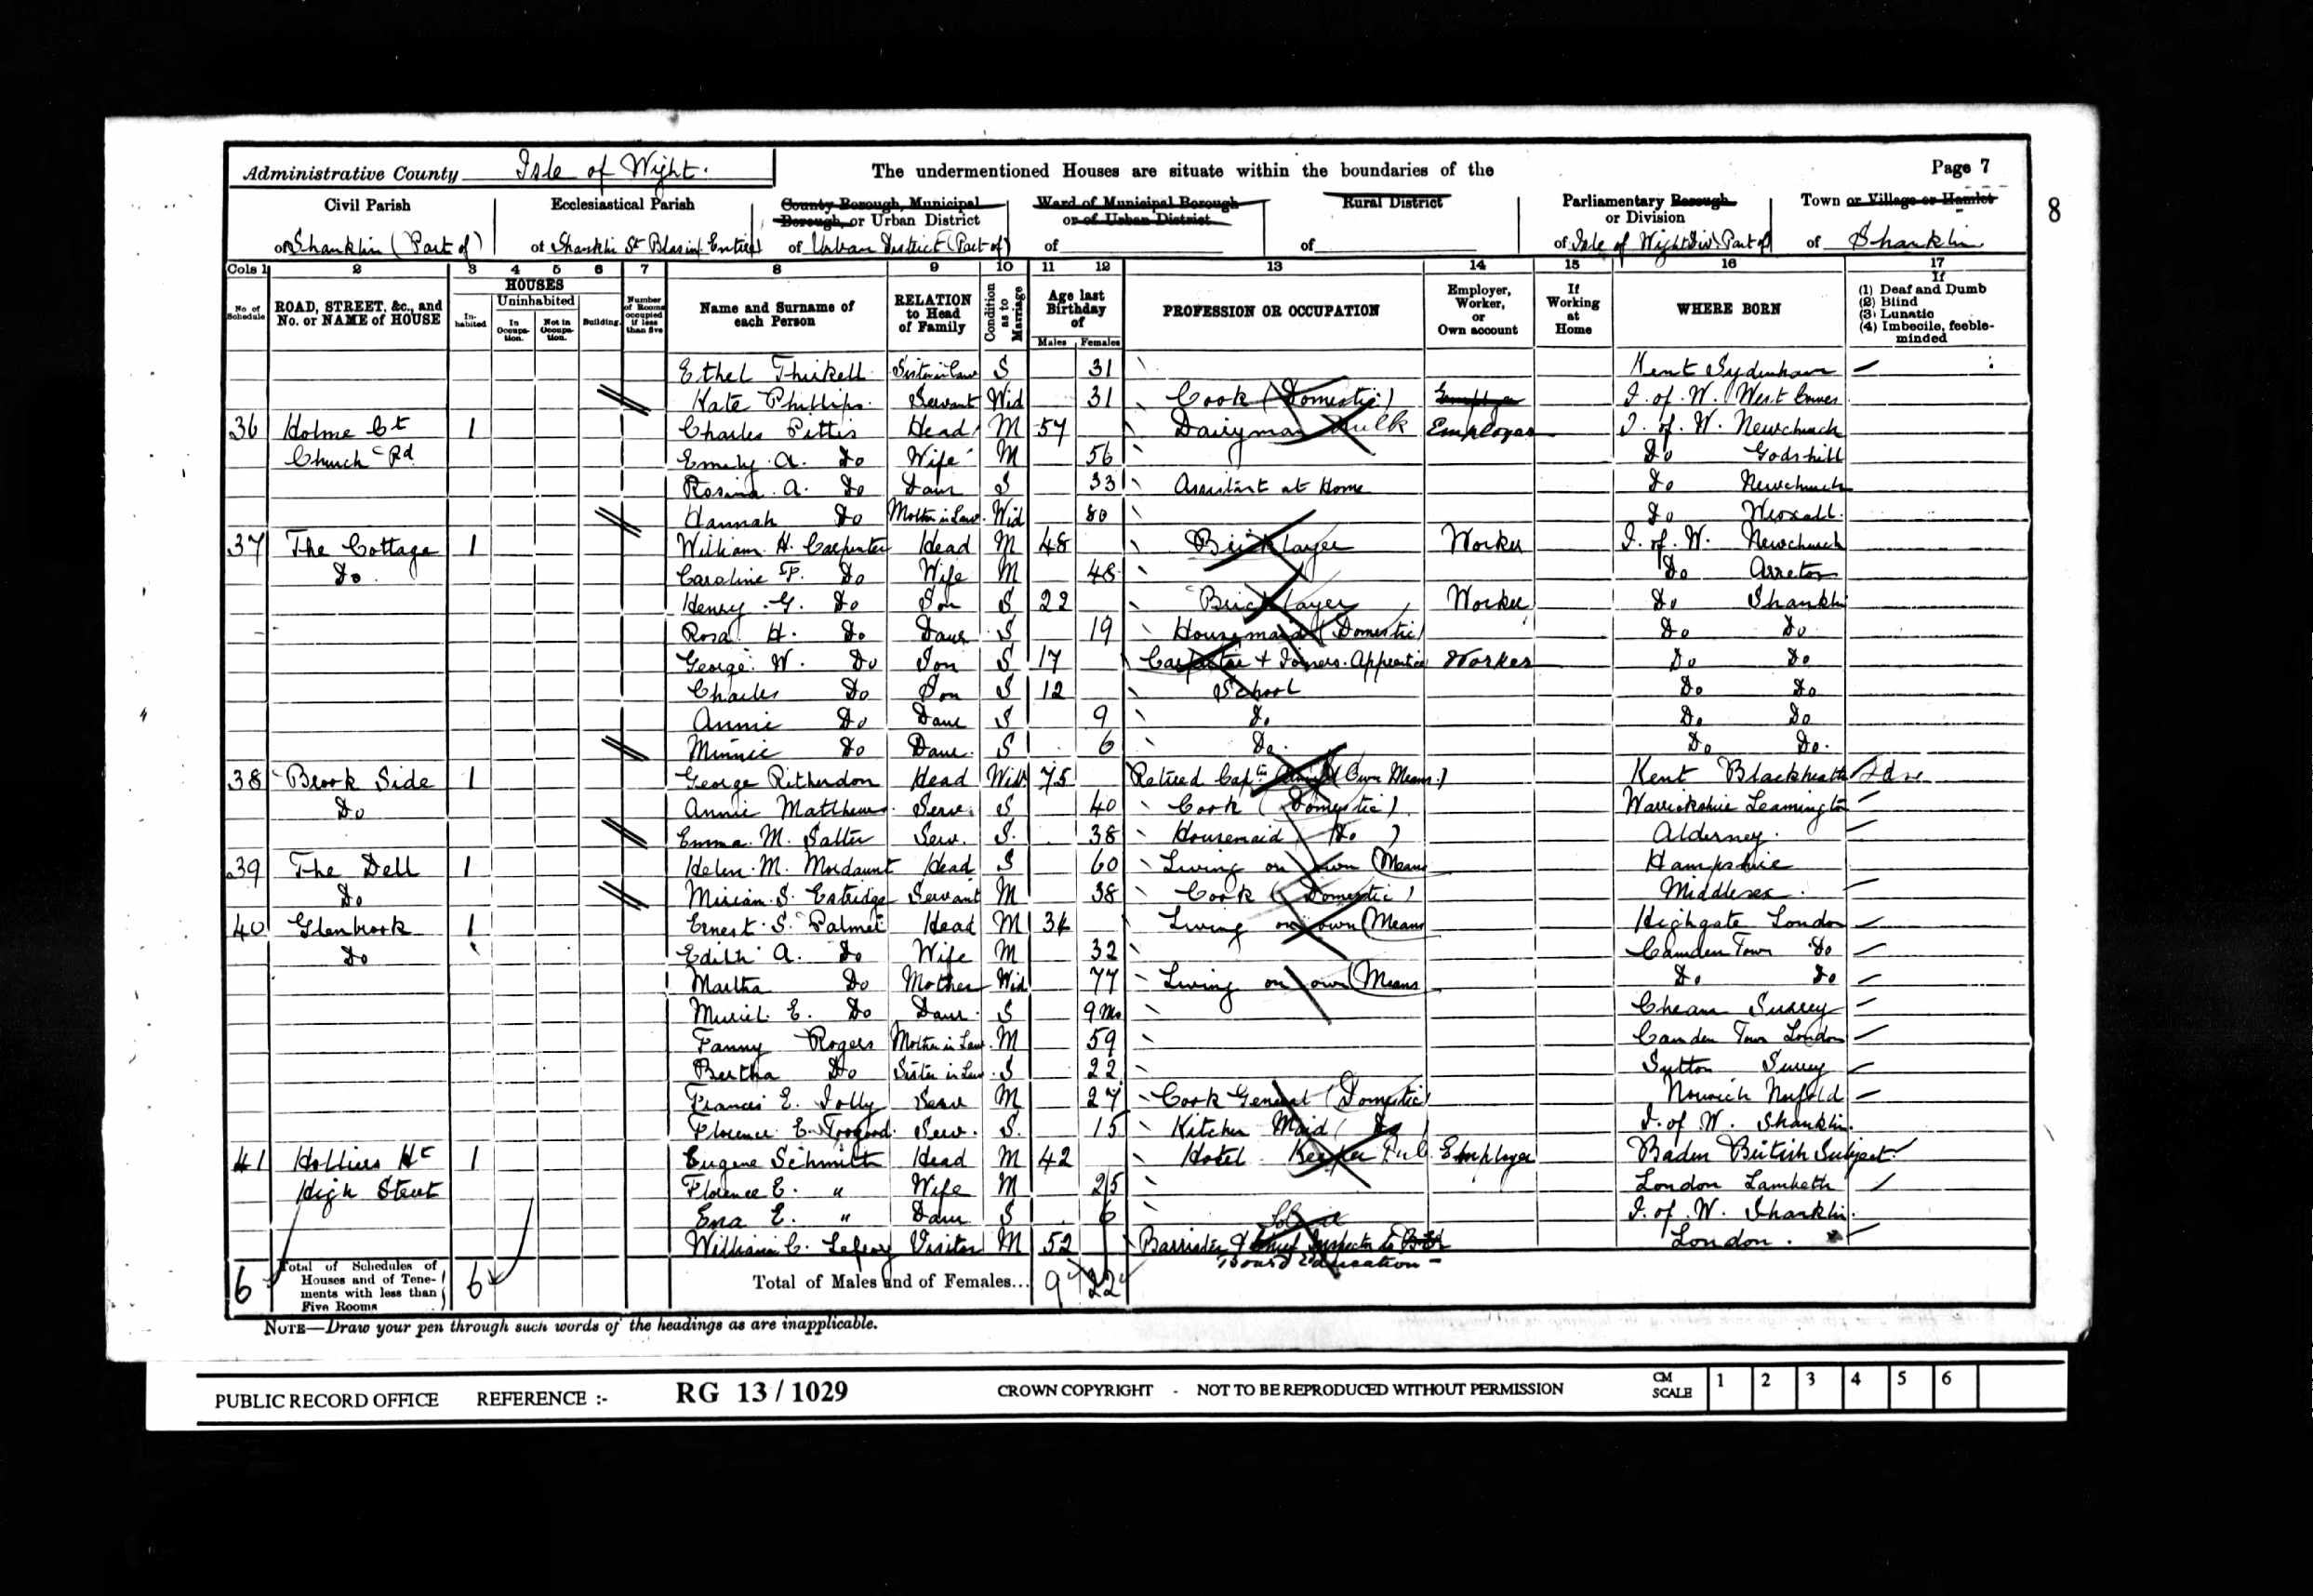 Administrative County Isle of Wight. The undermentioned Houses are situate within the boundaries of the Page 7
8
Civil Parish Ecclesiastical Parish County Borough, Municipal Borough, or Urban District Ward of Municipal Borough or of Urban District Rural District Parliamentary Borough or Division Town or Village or Hamlet
of Shanklin (Part of) of Shanklin St Blasius Entire of Urban District (Part of) of of of Isle of Wight Div Part of of Shanklin
Cols 1 2 3 4 5 6 7 8 9 10 11 12 13 14 15 16 17
No. of Schedule ROAD, STREET, &c., and No. or NAME of HOUSE HOUSES Inhabited Uninhabited In Occupation. Not in Occupation. Building. Number of Rooms occupied if less than five Name and Surname of each Person RELATION to Head of Family Condition as to Marriage Age last Birthday of Males Females PROFESSION OR OCCUPATION Employer, Worker, or Own account If Working at Home WHERE BORN If (1) Deaf and Dumb (2) Blind (3) Lunatic (4) Imbecile, feeble-minded
Ethel Thirkell Sister in Law S 31 Kent Sydenham
Kate Phillips Servant Wid 31 Cook (Domestic) I. of. W. West Cowes
36 Holme Ct 1 Charles Pittis Head M 57 Dairyman Milk Employer I. of. W. Newchurch
Church Rd Emily A. Do Wife M 56 Do Godshill
Rosina A. Do Daur S 33 Assistant at Home Do Newchurch
Hannah Do Mother in Law Wid 80 Do Wroxall.
37 The Cottage 1 William H. Carpenter Head M 48 Bricklayer Worker I. of. W. Newchurch
Do Caroline F. Do Wife M 48 Do Arreton
Henry G. Do Son S 22 Bricklayer Worker Do Shanklin
Rosa H. Do Daur S 19 Housemaid (Domestic) Do Do
George W. Do Son S 17 Carpenter & Joiners Apprentice Worker Do Do
Charles Do Son S 12 School Do Do
Annie Do Daur S 9 Do Do Do
Minnie Do Daur. S 6 Do. Do Do.
38 Brook Side 1 George Ritherdon Head Wid 75 Retired Captn (Own Means) Kent Blackheath
Do Annie Matthews Serv. S 40 Cook (Domestic) Warwickshire Leamington
Emma M. Salter Serv. S. 38 Housemaid (Do) Alderney.
39 The Dell 1 Helen M. Mordaunt Head S 60 Living on own Means Hampshire
Do Miriam S. Eatridge Servant M 38 Cook (Domestic) Middlesex.
40 Glenbrook 1 Ernest S. Palmer Head M 34 Living on own Means Highgate London
Do Edith A. Do Wife M 32 Camden Town Do
Martha Do Mother Wid 77 Living on own Means Do Do
Muriel E. Do Daur. S 9 Mo Cheam Surrey
Fanny Rogers Mother in Law. M 59 Camden Town London
Bertha Do Sister in Law. S 22 Sutton Surrey
Frances E. Jolly Serv M 27 Cook General (Domestic) Norwich Norfolk
Florence E. Toogood. Serv. S. 15 Kitchen Maid (Do) I. of W. Shanklin.
41 Hollies Hl 1 Eugene Schmith Head M 42 Hotel Keeper Pub Employer Baden British Subject.
High Street Florence E. " Wife M 25 London Lambeth
Ena E. " Daur S 6 I. of. W. Shanklin.
William C. Lefroy Visitor M 52 Barrister & Chief Inspector to London.
Board Education
6 Total of Schedules of Houses and of Tenements with less than Five Rooms 6 Total of Males and of Females... 9 22
NOTE—Draw your pen through such words of the headings as are inapplicable.
PUBLIC RECORD OFFICE REFERENCE :- RG 13 / 1029 CROWN COPYRIGHT - NOT TO BE REPRODUCED WITHOUT PERMISSION CM SCALE 1 2 3 4 5 6